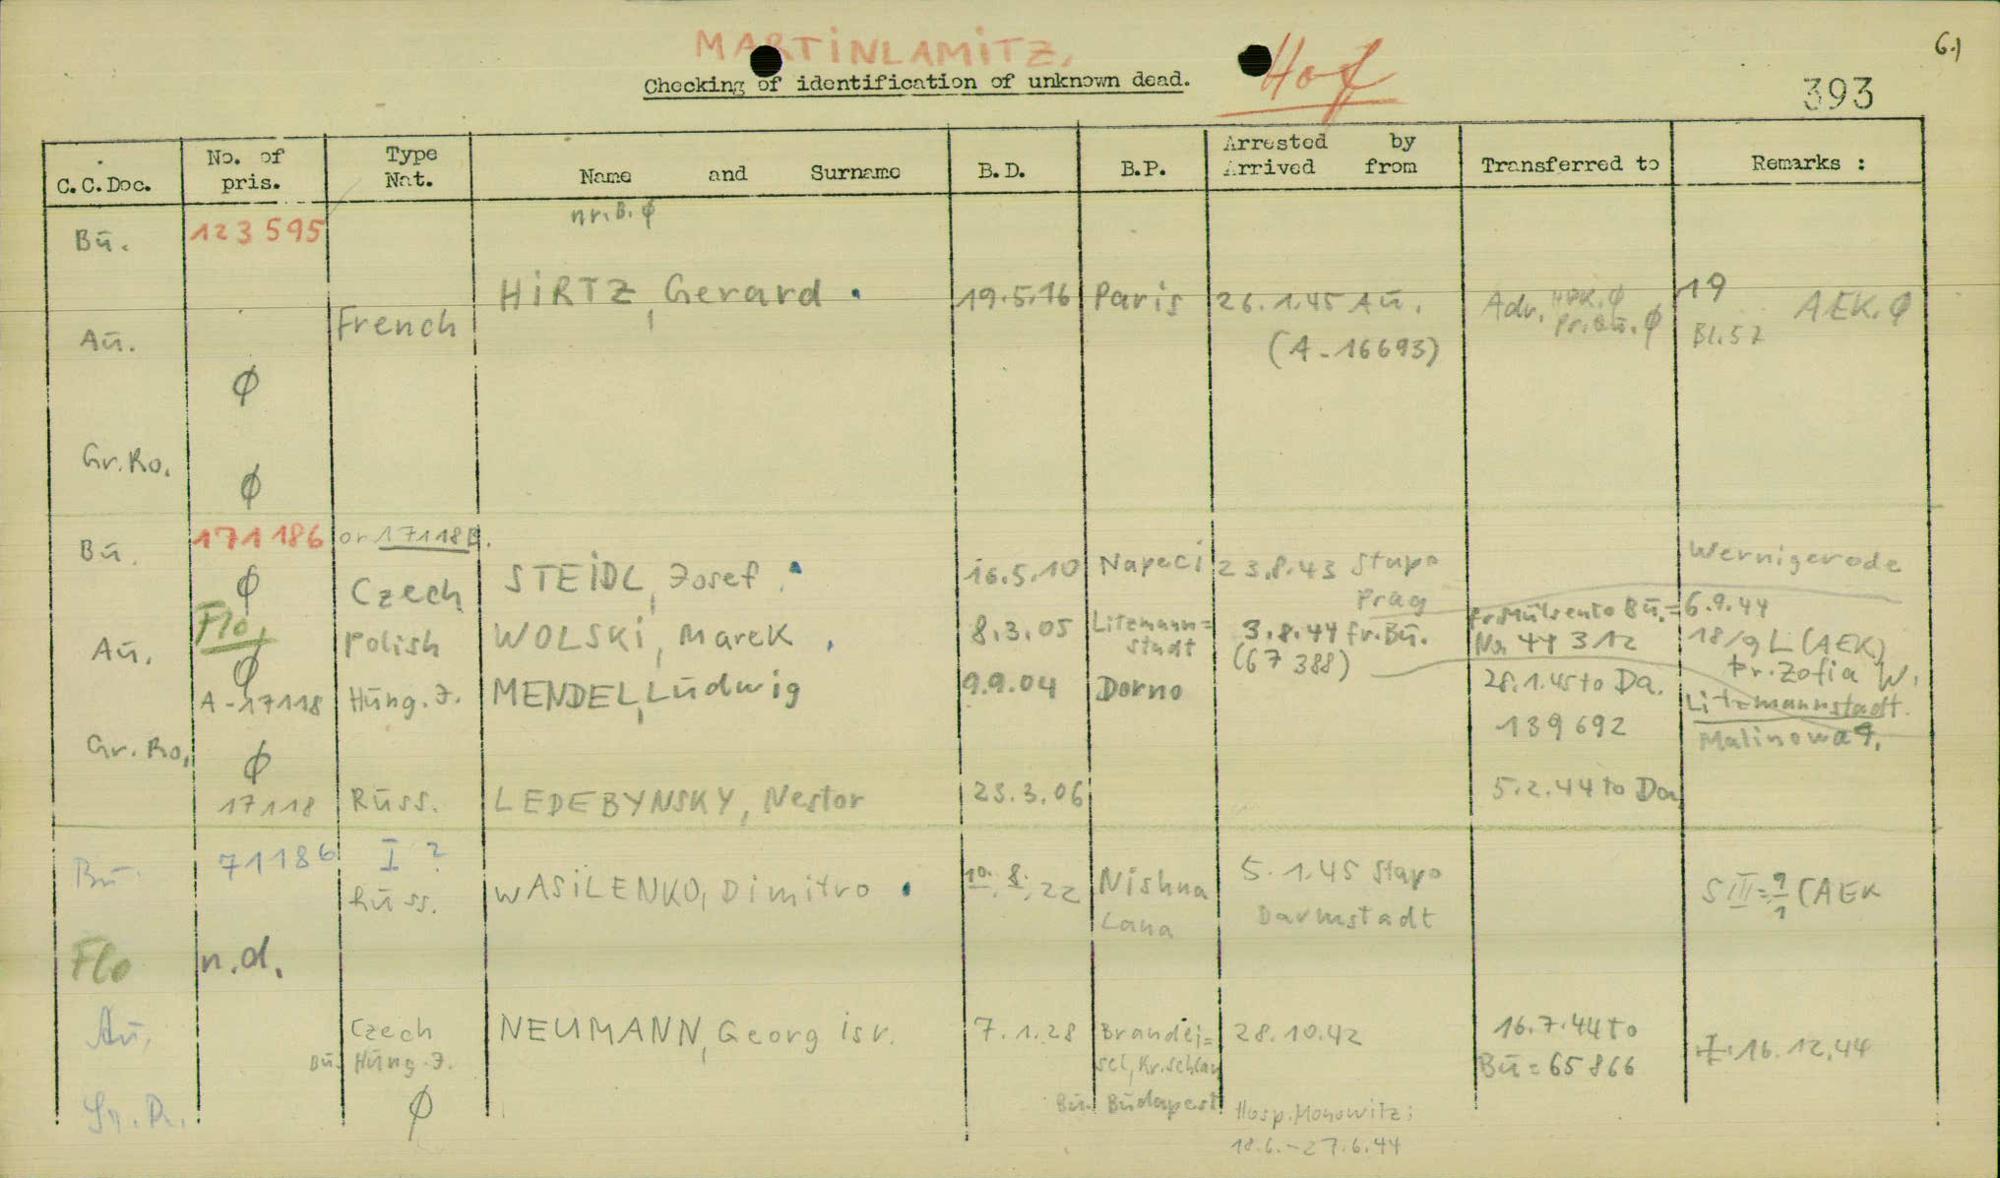 6.)
MARTINLAMITZ,
Checking of identification of unknown dead.
Hof
393
C.C.Doc. No. of pris. Type Nat. Name and Surname B.D. B.P. Arrested by Arrived from Transferred to Remarks :
nr.B. ∅
Bū. 123595
HIRTZ, Gerard . 19.5.16 Paris 26.1.45 Aū. Adr. 19
French (A-16693) Pr.Bū. ∅ Bl.57 AEK. ∅
Aū.
∅
Gr.Ro.
∅
Bū. 171186 or 17118B.
∅ Czech STEIDL, Josef . 16.5.10 Napeci 23.8.43 Stapo Prag Wernigerode
Flo,
Polish WOLSKI, Marek , 8.3.05 Litzmann= stadt 3.8.44 fr.Bū. (67388) Bū.= 6.9.44
No 44312 18/9 L (AEK)
Fr. Zofia W.
Litzmannstadt.
Malinowa 9.
Aū. ∅
A-17118 Hūng.J. MENDEL, Lūdwig 9.9.04 Dorno 28.1.45 to Da.
139692
Gr.Ro, ∅
17118 Rūss. LEDEBYNSKY, Nestor 23.3.06 5.2.44 to Da
Bū 71186 I ?
Rūss. WASILENKO, Dimitro . 10.8.22 Nishna Lana 5.1.45 Stapo Darmstadt S III = 9/1 (AEK
Flo n.d.
Aū. Czech NEUMANN, Georg isr. 7.1.28 Brandei= sel, Kr.Schlan 28.10.42 16.7.44 to Bū = 65866 ‡ 16.12.44
Bū. Hūng.J.
Bū. Būdapest Hosp.Monowitz:
18.6.-27.6.44
Gr.R. ∅